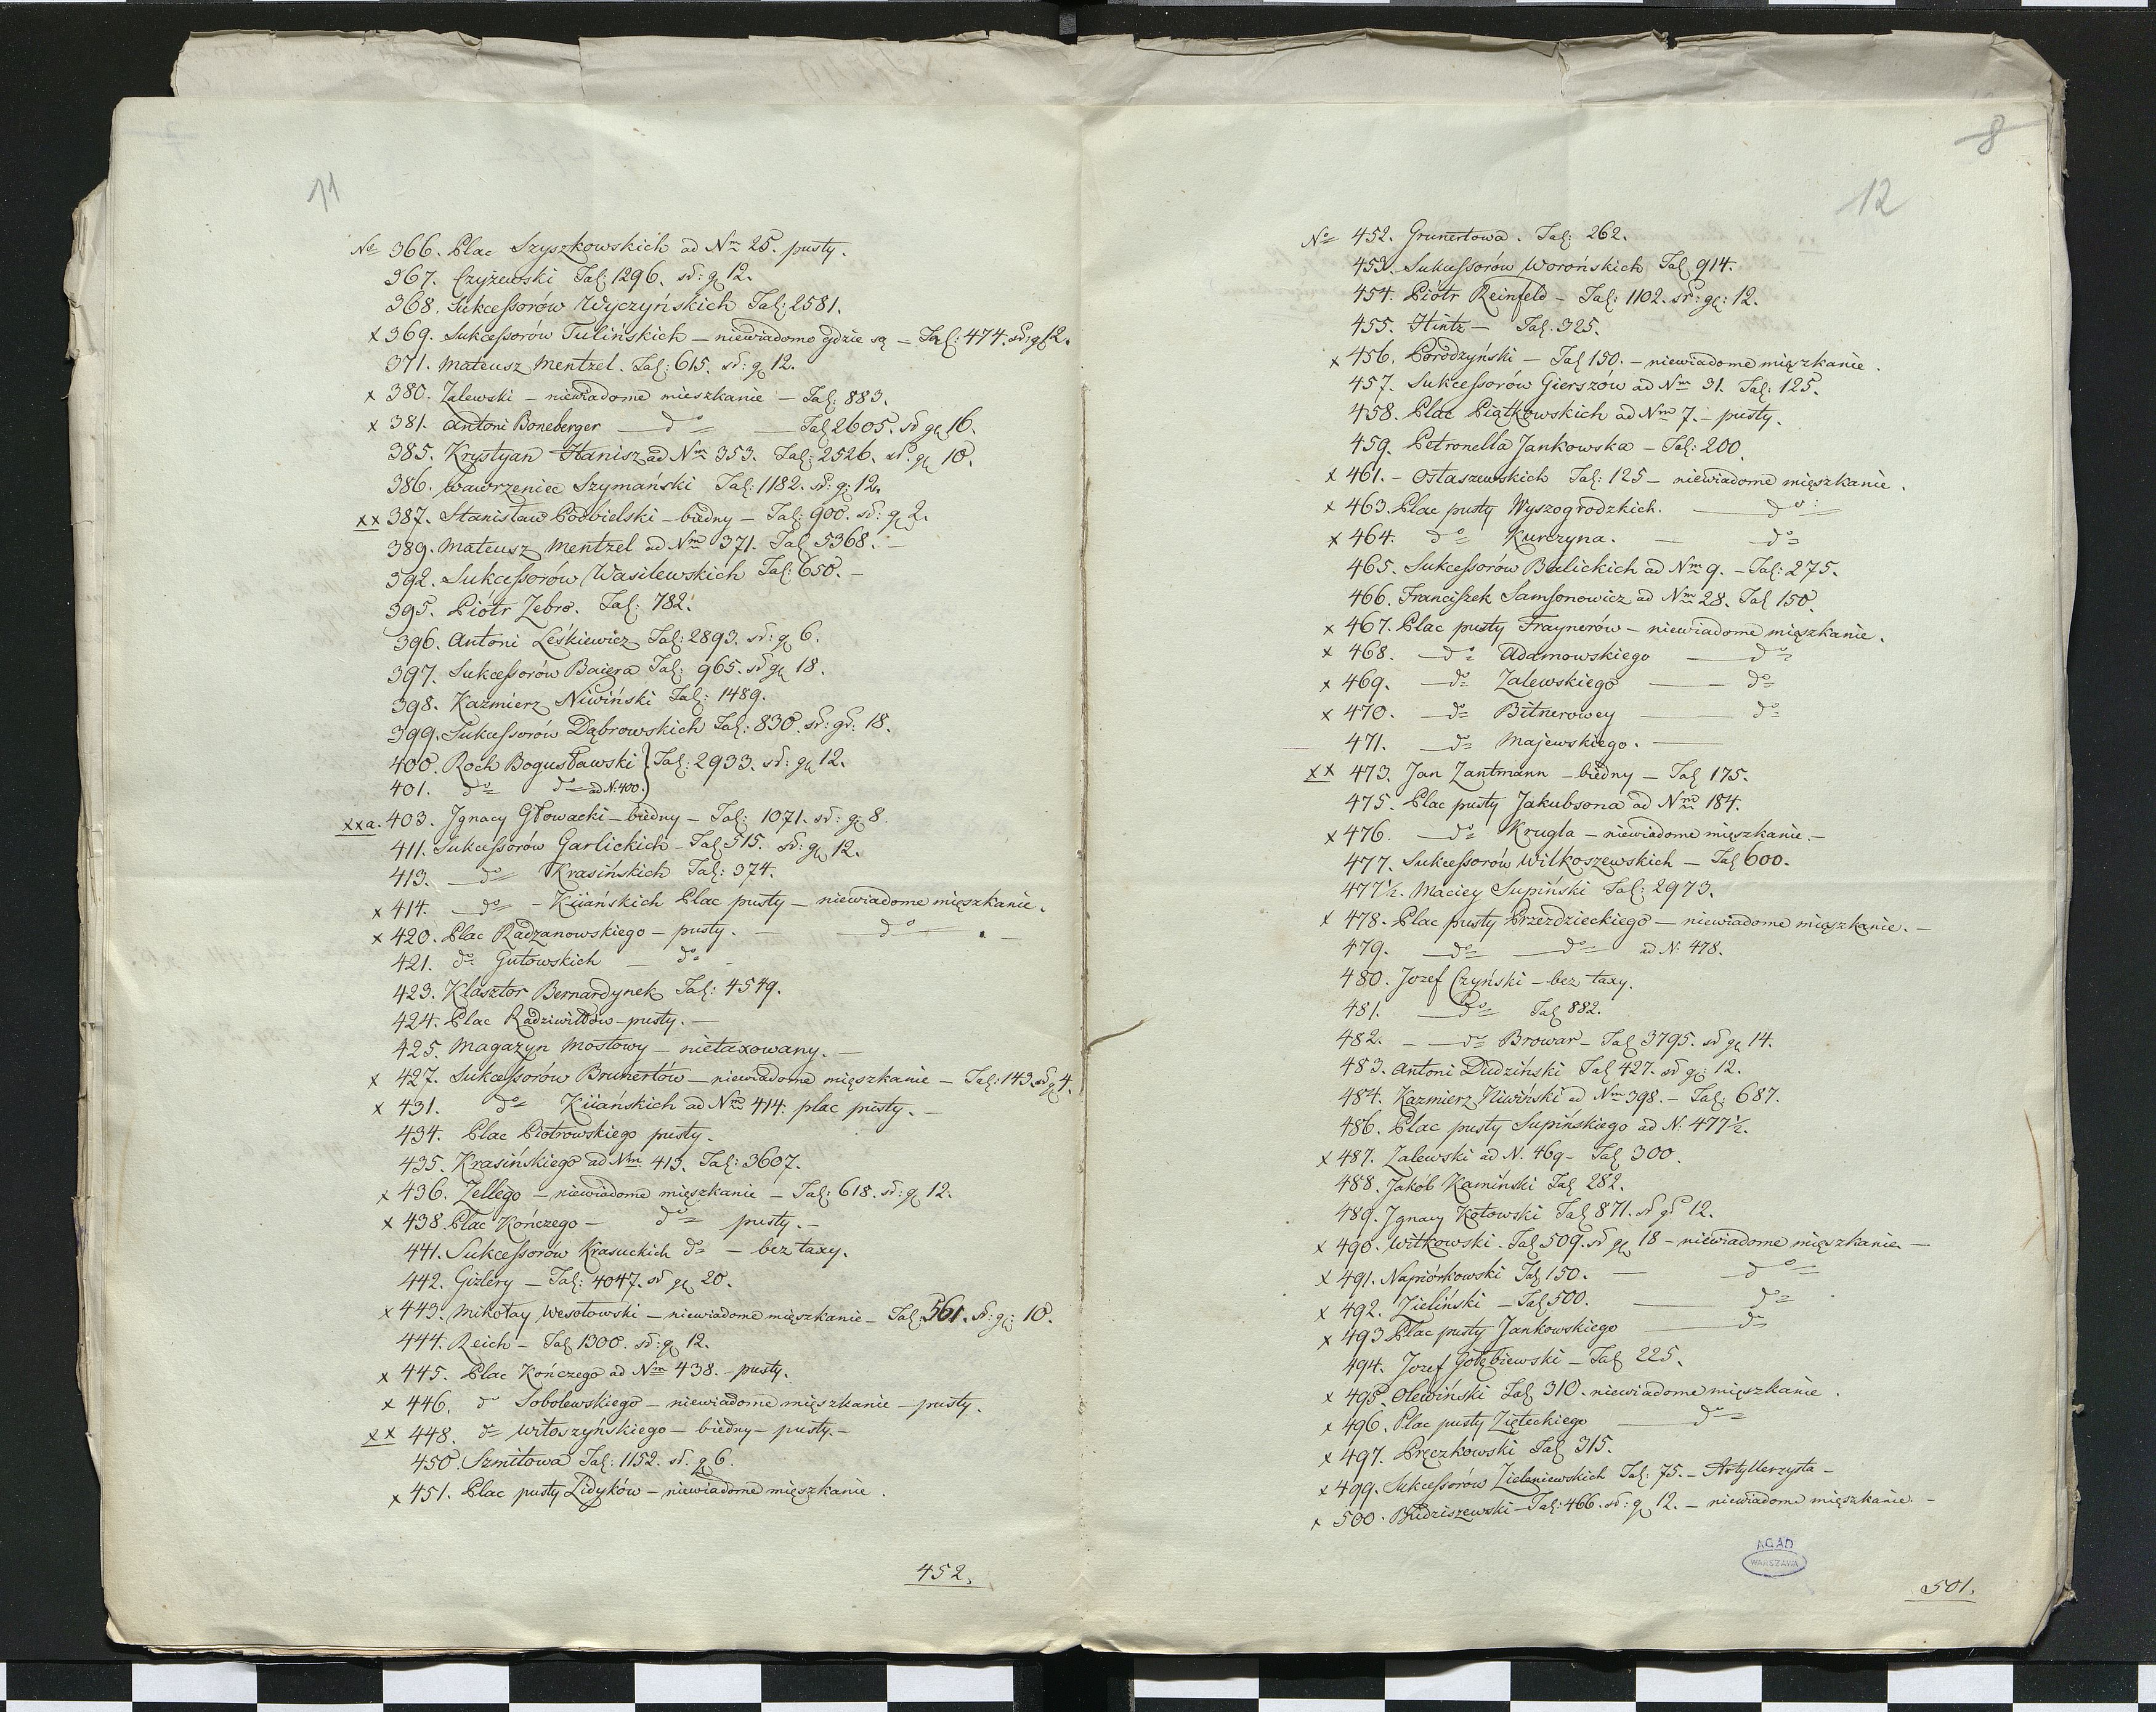 11
No 366. Plac Szyszkowskich ad Nm 25. pusty.
367. Czyżewski Tal: 1296. sr: g 12.
368. Sukcessorów Wyczyńskich Tal: 2581.
x 369. Sukcessorów Tulińskich — niewiadomo gdzie są — Tal: 474. sr: g 12.
371. Mateusz Mentzel. Tal: 615. sr: g 12.
x 380. Zalewski — niewiadome mieszkanie — Tal: 883.
x 381. Antoni Boneberger — do — Tal 2605. sr g 16.
385. Krystyan Hanisz ad Nm 353. Tal: 2526. sr. g 10.
386. Wawrzeniec Szymański Tal: 1182. sr: g: 12.
xx 387. Stanisław Podbielski — biedny — Tal: 900. sr: g 2.
389. Mateusz Mentzel ad Nm 371. Tal 5368. —
392. Sukcessorów Wasilewskich Tal: 650. —
395. Piótr Zebro. Tal: 782.
396. Antoni Leśkiewicz Tal: 2893. sr: g 6.
397. Sukcessorów Baiera Tal: 965. sr g 18.
398. Kaźmierz Niwiński Tal: 1489.
399. Sukcessorów Dąbrowskich Tal: 830. sr: gr: 18.
400. Roch Bogusławski } Tal: 2933. sr: g 12.
401. do do ad N. 400. }
xxa. 403. Jgnacy Głowacki — biedny — Tal: 1071. sr: g: 8.
411. Sukcessorów Garlickich — Tal 515. sr: g 12.
413. — do Krasińskich Tal: 374.
x 414. — do — Kiiańskich Plac pusty — niewiadome mięszkanie.
x 420. Plac Radzanowskiego — pusty. — do —
421. do Gutowskich — do —
423. Klasztor Bernardynek Tal: 4549.
424. Plac Radziwiłłów — pusty. —
425. Magazyn Mostowy — nietaxowany. —
x 427. Sukcessorów Brunertów — niewiadome mięszkanie — Tal: 143. sr g 4.
x 431. do Kiiańskich ad Nm 414. plac pusty. —
434. Plac Piotrowskiego pusty.
435. Krasińskiego ad Nm 413. Tal: 3607.
x 436. Zellego — niewiadome mięszkanie — Tal: 618. sr: g 12.
x 438. Plac Kończego — do pusty. —
441. Sukcessorów Krasuckich do — bez taxy.
442. Gizlery — Tal: 4047. sr g 20.
x 443. Mikołay Wesołowski — niewiadome mięszkanie — Tal: 561. sr: g: 10.
444. Reich — Tal 1300. sr: g 12.
x 445. Plac Kończego ad Nm 438. — pusty.
x 446. do Sobolewskiego — niewiadome mięszkanie — pusty.
xx 448. do Witoszyńskiego — biedny — pusty. —
450. Szmitowa Tal: 1152. sr. g 6.
x 451. Plac pusty Lidyków — niewiadome mięszkanie.
452.
8
12
No 452. Grunertowa. Tal: 262.
453. Sukcessorów Worońskich Tal 914.
454. Piótr Reinfeld — Tal: 1102. sr: g: 12.
455. Hintz — Tal. 325.
x 456. Porodzyński — Tal 150. — niewiadome mięszkanie.
457. Sukcessorów Gierszów ad Nm 31. Tal: 125.
458. Plac Piątkowskich ad Nm 7. — pusty.
459. Petronella Jankowska — Tal: 200.
x 461. — Ostaszewskich Tal: 125 — niewiadome mięszkanie.
x 463. Plac pusty Wyszogrodzkich. — do
x 464. do Kurczyna. — do
465. Sukcessorów Balickich ad Nm 9. — Tal: 275.
466. Franciszek Samsonowicz ad Nm 28. Tal 150.
x 467. Plac pusty Fraynerów — niewiadome mięszkanie.
x 468. — do Adamowskiego — do
x 469. — do Zalewskiego — do
x 470. — do Bitnerowey — do
471. — do Majewskiego. —
xx 473. Jan Zantmann — biedny — Tal 175.
475. Plac pusty Jakubsona ad Nm 184.
x 476. — do Krugla — niewiadome mięszkanie. —
477. Sukcessorów Wilkoszewskich — Tal 600.
477½. Maciey Supiński Tal: 2973.
x 478. Plac pusty Przezdzieckiego — niewiadome mięszkanie. —
479. — do — do ad N: 478.
480. Jozef Czyński — bez taxy.
481. — do Tal 882.
482. — — do Browar — Tal 3795. sr g 14.
483. Antoni Dudziński Tal 427. sr g: 12.
484. Kazmierz Niwiński ad Nm 398. — Tal: 687.
486. Plac pusty Supińskiego ad N: 477½.
x 487. Zalewski ad N. 469 — Tal 300.
488. Jakób Kamiński Tal 282.
489. Jgnacy Kotowski Tal 871. sr gr 12.
x 490. Witkowski. Tal 509. sr g 18 — niewiadome mięszkanie. —
x 491. Napiórkowski Tal 150. — do
x 492. Zieliński — Tal 500. — do
x 493 Plac pusty Jankowskiego — do
494. Jozef Gołębiewski — Tal 225.
x 495. Olewiński Tal 310. niewiadome mięszkanie.
x 496. Plac pusty Zięteckiego — do
x 497. Pręczkowski Tal 315.
x 499. Sukcessorów Zieleniewskich Tal: 75. — Artyllerzysta —
x 500. Budziszewski — Tal: 466. sr: g 12. — niewiadome mięszkanie. —
AGAD
WARSZAWA
501.